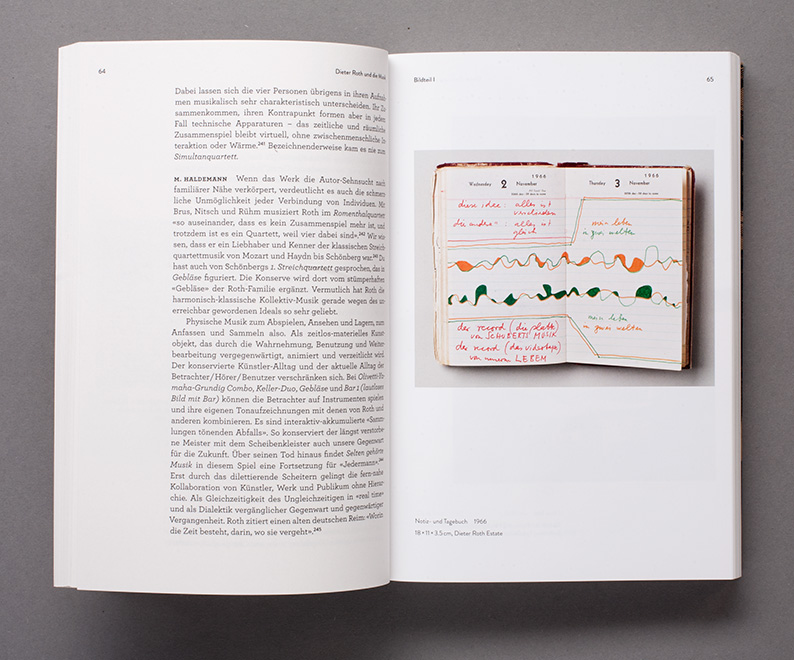 64
Dieter Roth und die Musik
Dabei lassen sich die vier Personen übrigens in ihren Aufnah-
men musikalisch sehr charakteristisch unterscheiden. Ihr Zu-
sammenkommen, ihren Kontrapunkt formen aber in jedem
Fall technische Apparaturen – das zeitliche und räumliche
Zusammenspiel bleibt virtuell, ohne zwischenmenschliche In-
teraktion oder Wärme.²⁴¹ Bezeichnenderweise kam es nie zum
Simultanquartett.
M. HALDEMANN Wenn das Werk die Autor-Sehnsucht nach
familiärer Nähe verkörpert, verdeutlicht es auch die schmerz-
liche Unmöglichkeit jeder Verbindung von Individuen. Mit
Brus, Nitsch und Rühm musiziert Roth im Romenthalquartett
«so auseinander, dass es kein Zusammenspiel mehr ist, und
trotzdem ist es ein Quartett, weil vier dabei sind».²⁴² Wir wis-
sen, dass er ein Liebhaber und Kenner der klassischen Streich-
quartettmusik von Mozart und Haydn bis Schönberg war.²⁴³ Du
hast auch von Schönbergs 1. Streichquartett gesprochen, das in
Gebläse figuriert. Die Konserve wird dort vom stümperhaften
«Gebläse» der Roth-Familie ergänzt. Vermutlich hat Roth die
harmonisch-klassische Kollektiv-Musik gerade wegen des un-
erreichbar gewordenen Ideals so sehr geliebt.
Physische Musik zum Abspielen, Ansehen und Lagern, zum
Anfassen und Sammeln also. Als zeitlos-materielles Kunst-
objekt, das durch die Wahrnehmung, Benutzung und Weiter-
bearbeitung vergegenwärtigt, animiert und verzeitlicht wird.
Der konservierte Künstler-Alltag und der aktuelle Alltag der
Betrachter/Hörer/Benutzer verschränken sich. Bei Olivetti-Ya-
maha-Grundig Combo, Keller-Duo, Gebläse und Bar 1 (lautloses
Bild mit Bar) können die Betrachter auf Instrumenten spielen
und ihre eigenen Tonaufzeichnungen mit denen von Roth und
anderen kombinieren. Es sind interaktiv-akkumulierte «Samm-
lungen tönenden Abfalls». So konserviert der längst verstorbe-
ne Meister mit dem Scheibenkleister auch unsere Gegenwart
für die Zukunft. Über seinen Tod hinaus findet Selten gehörte
Musik in diesem Spiel eine Fortsetzung für «Jedermann».²⁴⁴
Erst durch das dilettierende Scheitern gelingt die fern-nahe
Kollaboration von Künstler, Werk und Publikum ohne Hierar-
chie. Als Gleichzeitigkeit des Ungleichzeitigen in «real time»
und als Dialektik vergänglicher Gegenwart und gegenwärtiger
Vergangenheit. Roth zitiert einen alten deutschen Reim: «Worin
die Zeit besteht, darin, wo sie vergeht».²⁴⁵
Bildteil I
65
1966
Wednesday 2 November
diese idee: alles ist
verschieden
die andere: alles ist
gleich
der record (die platte)
von SCHUBERTS MUSIK
der record (das videotape)
von unserem LEBEN
1966
Thursday 3 November
mein leben
in zwei welten
mein leben
in zwei welten
Notiz- und Tagebuch 1966
18 × 11 × 3.5 cm, Dieter Roth Estate